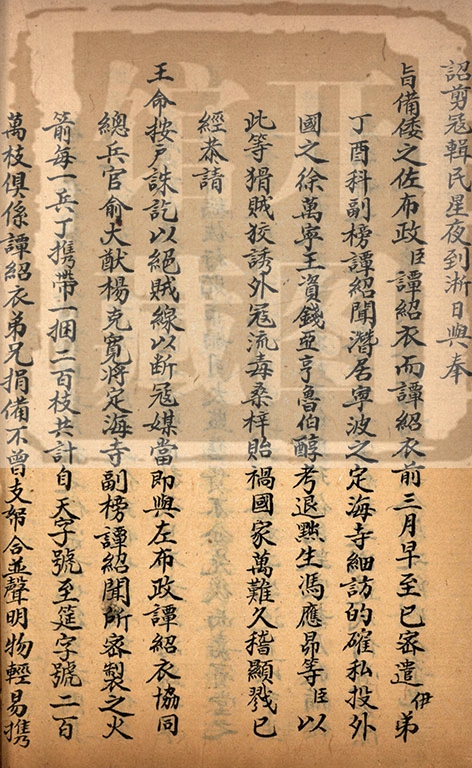 詔剪寇輯民星夜到浙日與奉
旨備倭之佐布政臣譚紹衣而譚紹衣前三月早至已密遣伊弟
丁酉科副榜譚紹聞潛居寧波之定海寺細訪的確私投外
國之徐萬寧王資錢亞亨魯伯醇考退黜生馮應昴等臣以
此等猾賊狡誘外寇流毒桑梓貽禍國家萬難久稽顯戮已
經恭請
王命按戶誅訖以絕賊線以斷寇媒當即與左布政譚紹衣協同
總兵官俞大猷楊克寬將定海寺副榜譚紹聞所密製之火
箭每一兵丁攜帶一捆二百枝共計自天字號至筵字號二百
萬枝俱係譚紹衣弟兄捐備不曾支帑合並聲明物輕易攜
开图
馆藏